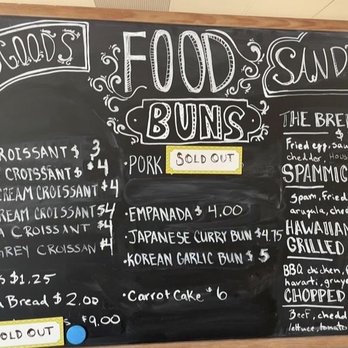 GOODS
CROISSANT $ 3
CROISSANT $4
CREAM CROISSANT $4
CREAM CROISSANT $4
CROISSANT $4
GREY CROISSANT $4
$1.25
Bread $2.00
$9.00
SOLD OUT
FOOD
BUNS
• PORK SOLD OUT
• EMPANADA $ 4.00
• JAPANESE CURRY BUN $4.75
• KOREAN GARLIC BUN $ 5
• Carrot Cake $ 6
SAND
THE BRE
$
Fried egg, sau
cheddar, Hous
SPAMMIC
Spam, Fried
arugula, chee
HAWAIIAN
GRILLED
BBQ chicken, f
havarti, gruye
CHOPPED
Beef, chedd
lettuce, tomatoe